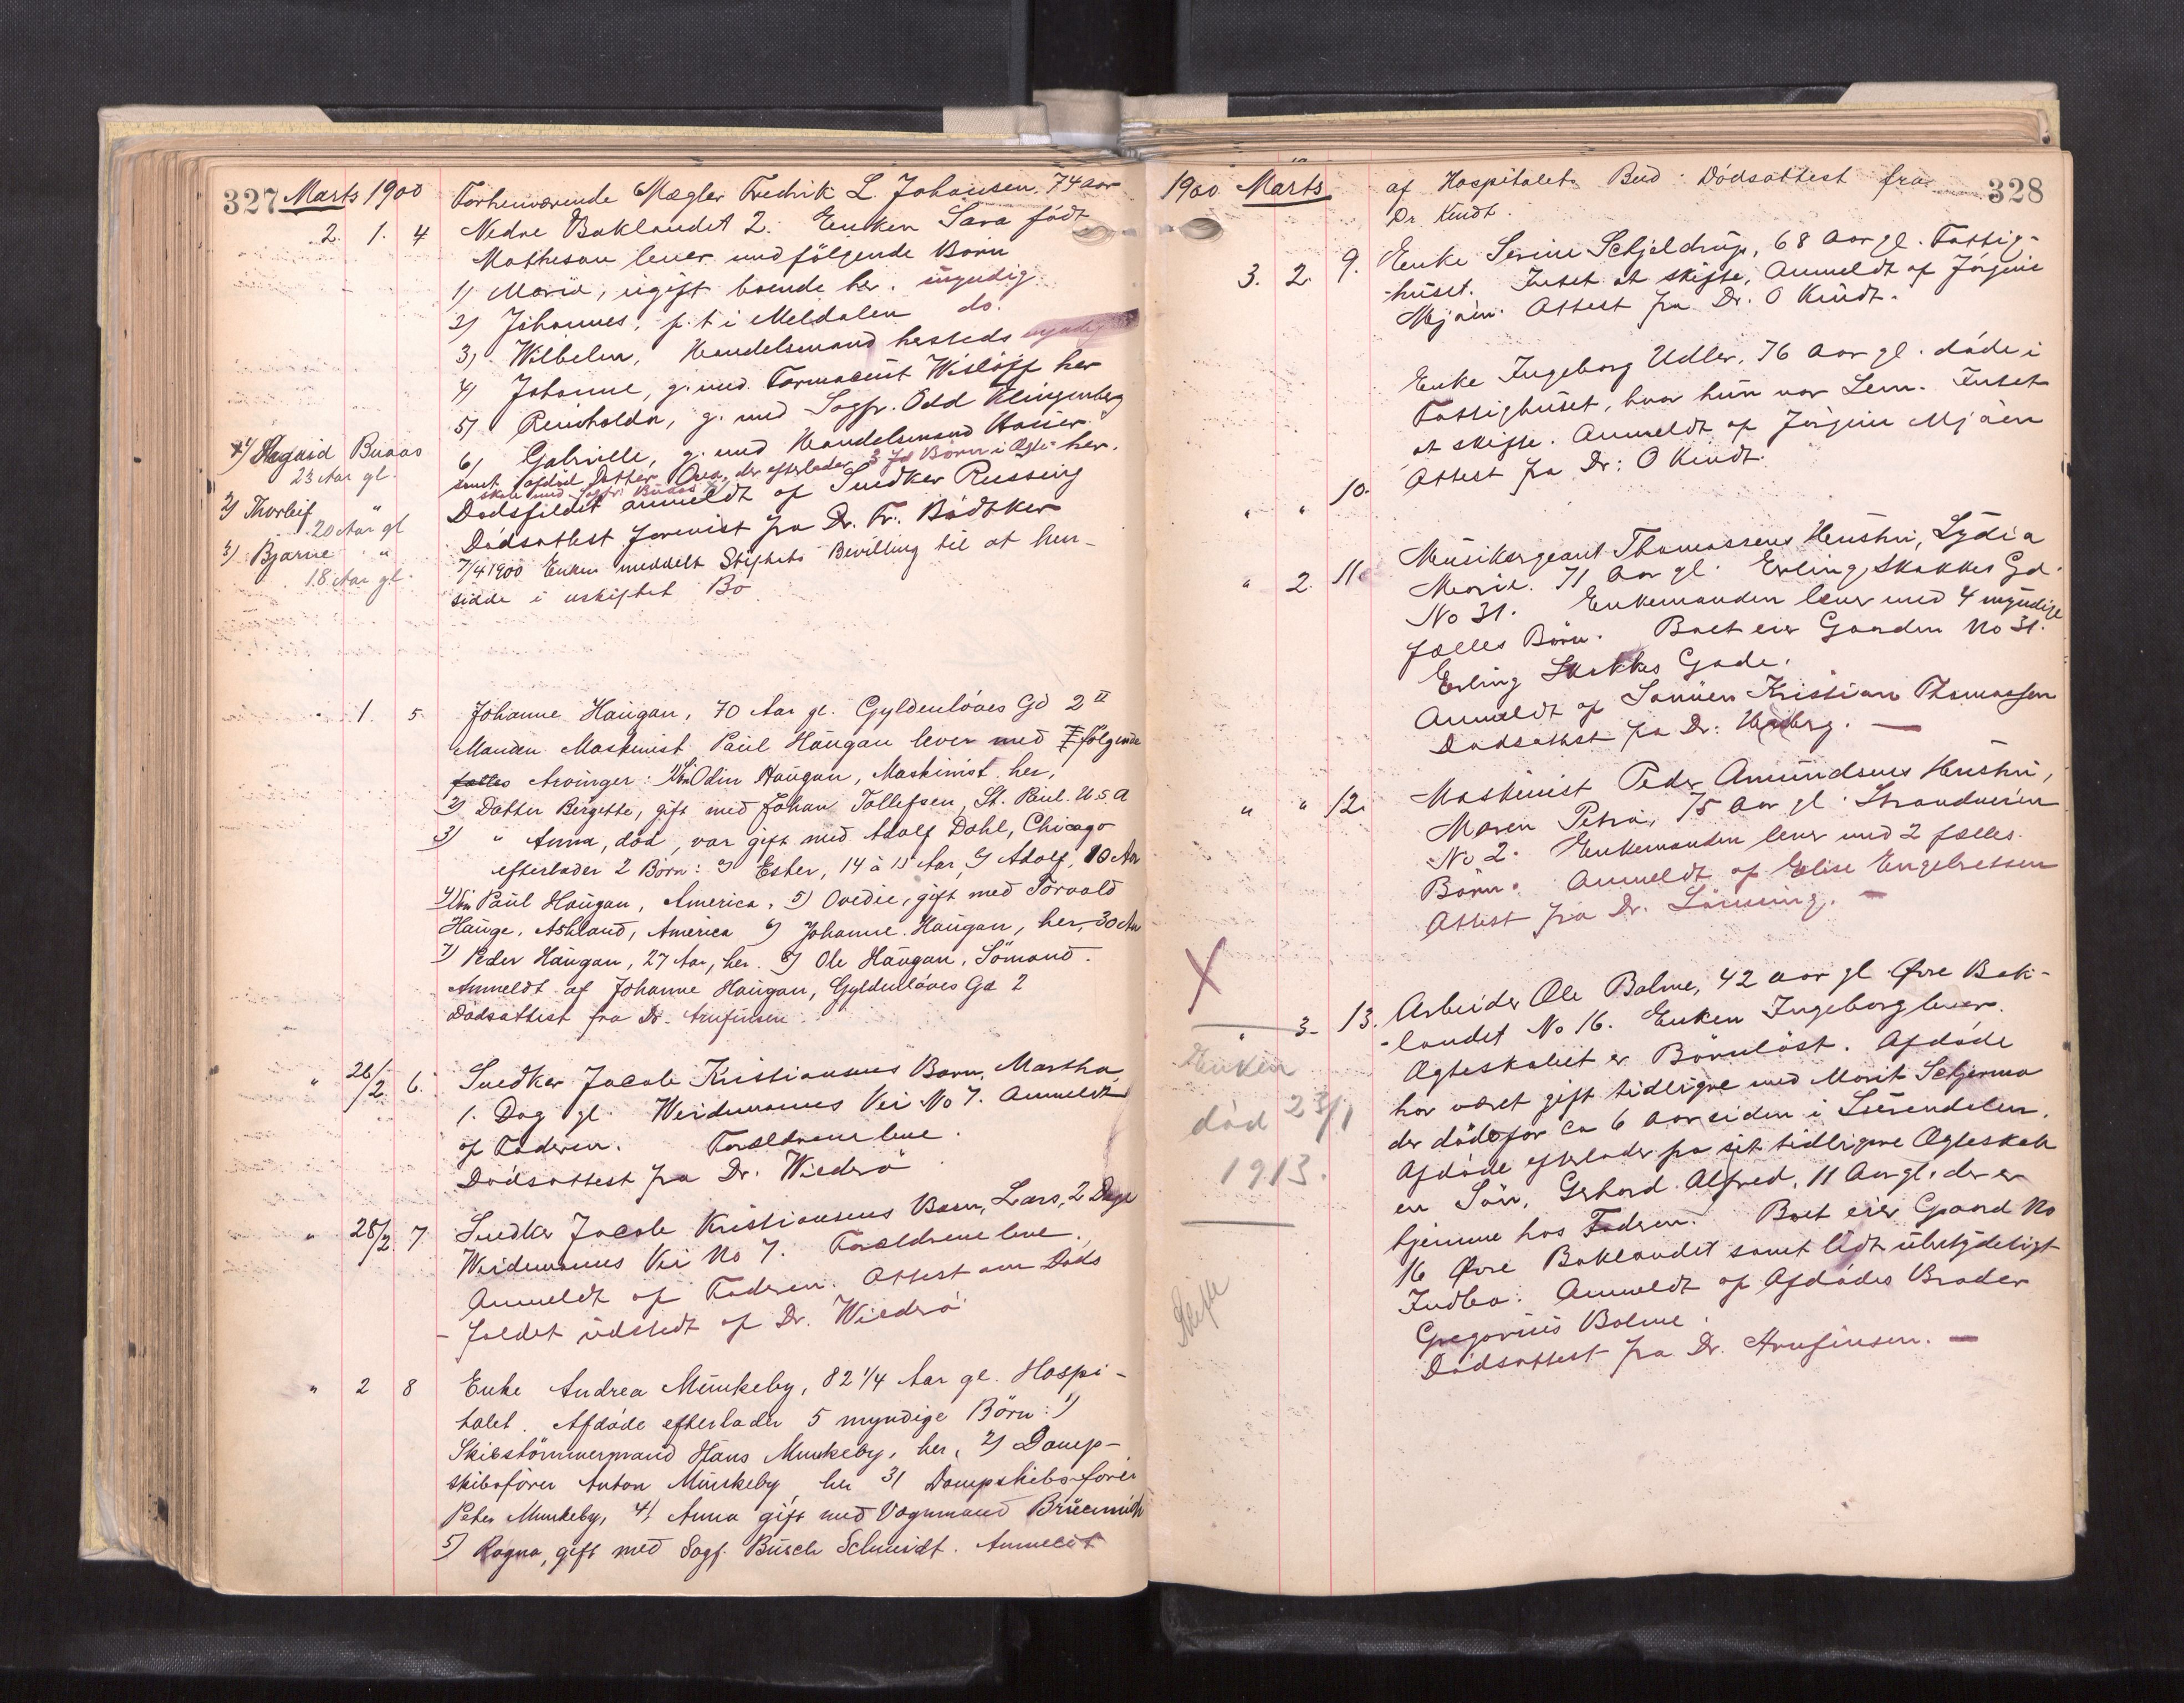 327 Marts 1900
2. 1. 4 Forhenværende Mægler Fredrik L. Johansen. 74 aar
Nedre Baklandet 2. Enken Sara født
Matheson lever med følgende Børn
1) Maria, ugift boende her. myndig
2) Johannes, p. t. i Meldalen do.
3) Wilhelm, Handelsmand hersteds myndig
4) Johanne, g. med Farmaceut Wisløff her
5) Reinholda, g. med Sagfr. Odd Klingenberg
6) Gabrielle, g. med Handelsmand her.
samt afdød Datter der efterlader 3 Børn i Ægte-
skab med Sagfr. Buaas
Dødsfaldet anmeldt af Snedker Russing
Dødsattest forevist fra Dr. Fr. Bödtker
7/4 1900 Enken meddelt Stiftets Bevilling til at hen-
sidde i uskiftet Bo
1) Dagaid Buaas
23 Aar gl.
2) Thorleif "
20 Aar gl
3) Bjarne "
18 Aar gl.
" 1. 5. Johanne Haugan, 70 Aar gl. Gyldenløves Gd 2 II
Manden Maskinist Paul Haugan lever med følgende
fælles Arvinger: 1) Søn Odin Haugan, Maskinist her,
2) Datter Bergette, gift med Johan Tollefsen, St. Paul. U.S.A
3) " Anna, død, var gift med Adolf Dahl, Chicago
efterlader 2 Børn: a) Ester, 14 à 15 Aar, b) Adolf, 10 Aar
4) Søn Paul Haugan, America, 5) Ovedie, gift med Torvald
Hauge, Ashland, America 6) Johanne Haugan, her, 30 Aar
7) Peder Haugan, 27 Aar, her. 8) Ole Haugan, Sömand.
Anmeldt af Johanne Haugan, Gyldenløves Gd 2
Dødsattest fra Dr. Arnfinsen.
" 26/2 6. Snedker Jacob Kristiansens Barn, Martha,
1. Dag gl. Weidemanns Vei No 7. Anmeldt
af Faderen. Forældrene leve.
Dødsattest fra Dr. Widerö
" 28/2. 7 Snedker Jacob Kristiansens Barn, Lars, 2 Dage
Weidemanns Vei No 7. Forældrene leve.
Anmeldt af Faderen. Attest om Døds
-faldet udstedt af Dr. Widerö
" 2 8 Enke Andrea Munkeby, 82 1/4 Aar gl. Hospi-
talet. Afdøde efterlader 5 myndige Börn: 1)
Skibstömmermand Hans Munkeby, her, 2) Damp-
skibsfører Anton Munkeby, her 3) Dampskibsfører
Peter Munkeby, 4) Anna gift med Vognmand
5) Ragna, gift med Sagf. Busch Schmidt. Anmeldt
1900 Marts 328
af Hospitalets Bud. Dödsattest fra
Dr. Kindt.
3. 2. 9. Enke Serine Schjeldrup, 68 Aar gl. Fattig-
huset. Intet at skifte, Anmeldt af Jørgine
Mjøen. Attest fra Dr. O Kindt.
" " 10. Enke Ingeborg Udler, 76 Aar gl. døde i
Fattighuset, hvor hun var Lem. Intet
at skifte. Anmeldt af Jörgine Mjøen
Attest fra Dr: O Kindt.
" 2. 11. Musikergeant Thomassens Hustru, Lydia
Marie. 71 Aar gl. Erling Skakkes Gd.
No 31. Enkemanden lever med 4 myndige
fælles Børn. Boet eier Gaarden No 31.
Erling Skakkes Gade.
Anmeldt af Sønnen Kristian Thomassen
Dødsattest fra Dr:
" " 12. Maskinist Peder Amundsens Hustru,
Maren Petra, 75 Aar gl. Strandveien
No 2. Enkemanden lever med 2 fælles
Børn. Anmeldt af Elise Engebretsen
Attest fra Dr. Lönning. —
X
" 3. 13. Arbeider Ole Bolme, 42 Aar gl. Øvre Bak-
-landet No 16. Enken Ingeborg lever.
Ægteskabet er Börnløst. Afdøde
har været gift tidligere med Marit Schjermo
der døde for ca 6 Aar siden i Surendalen.
Afdøde efterlader fra sit tidligere Ægteskab
en Sön, Gerhard Alfred, 11 Aar gl. der er
hjemme hos Fadren. Boet eier Gaard No
16 Øvre Baklandet samt lidt ubetydeligt
Indbo. Anmeldt af Afdødes Broder
Gregorius Bolme.
Dødsattest fra Dr. Arnfinsen. —
Enken
død 23/1
1913.
Skifte